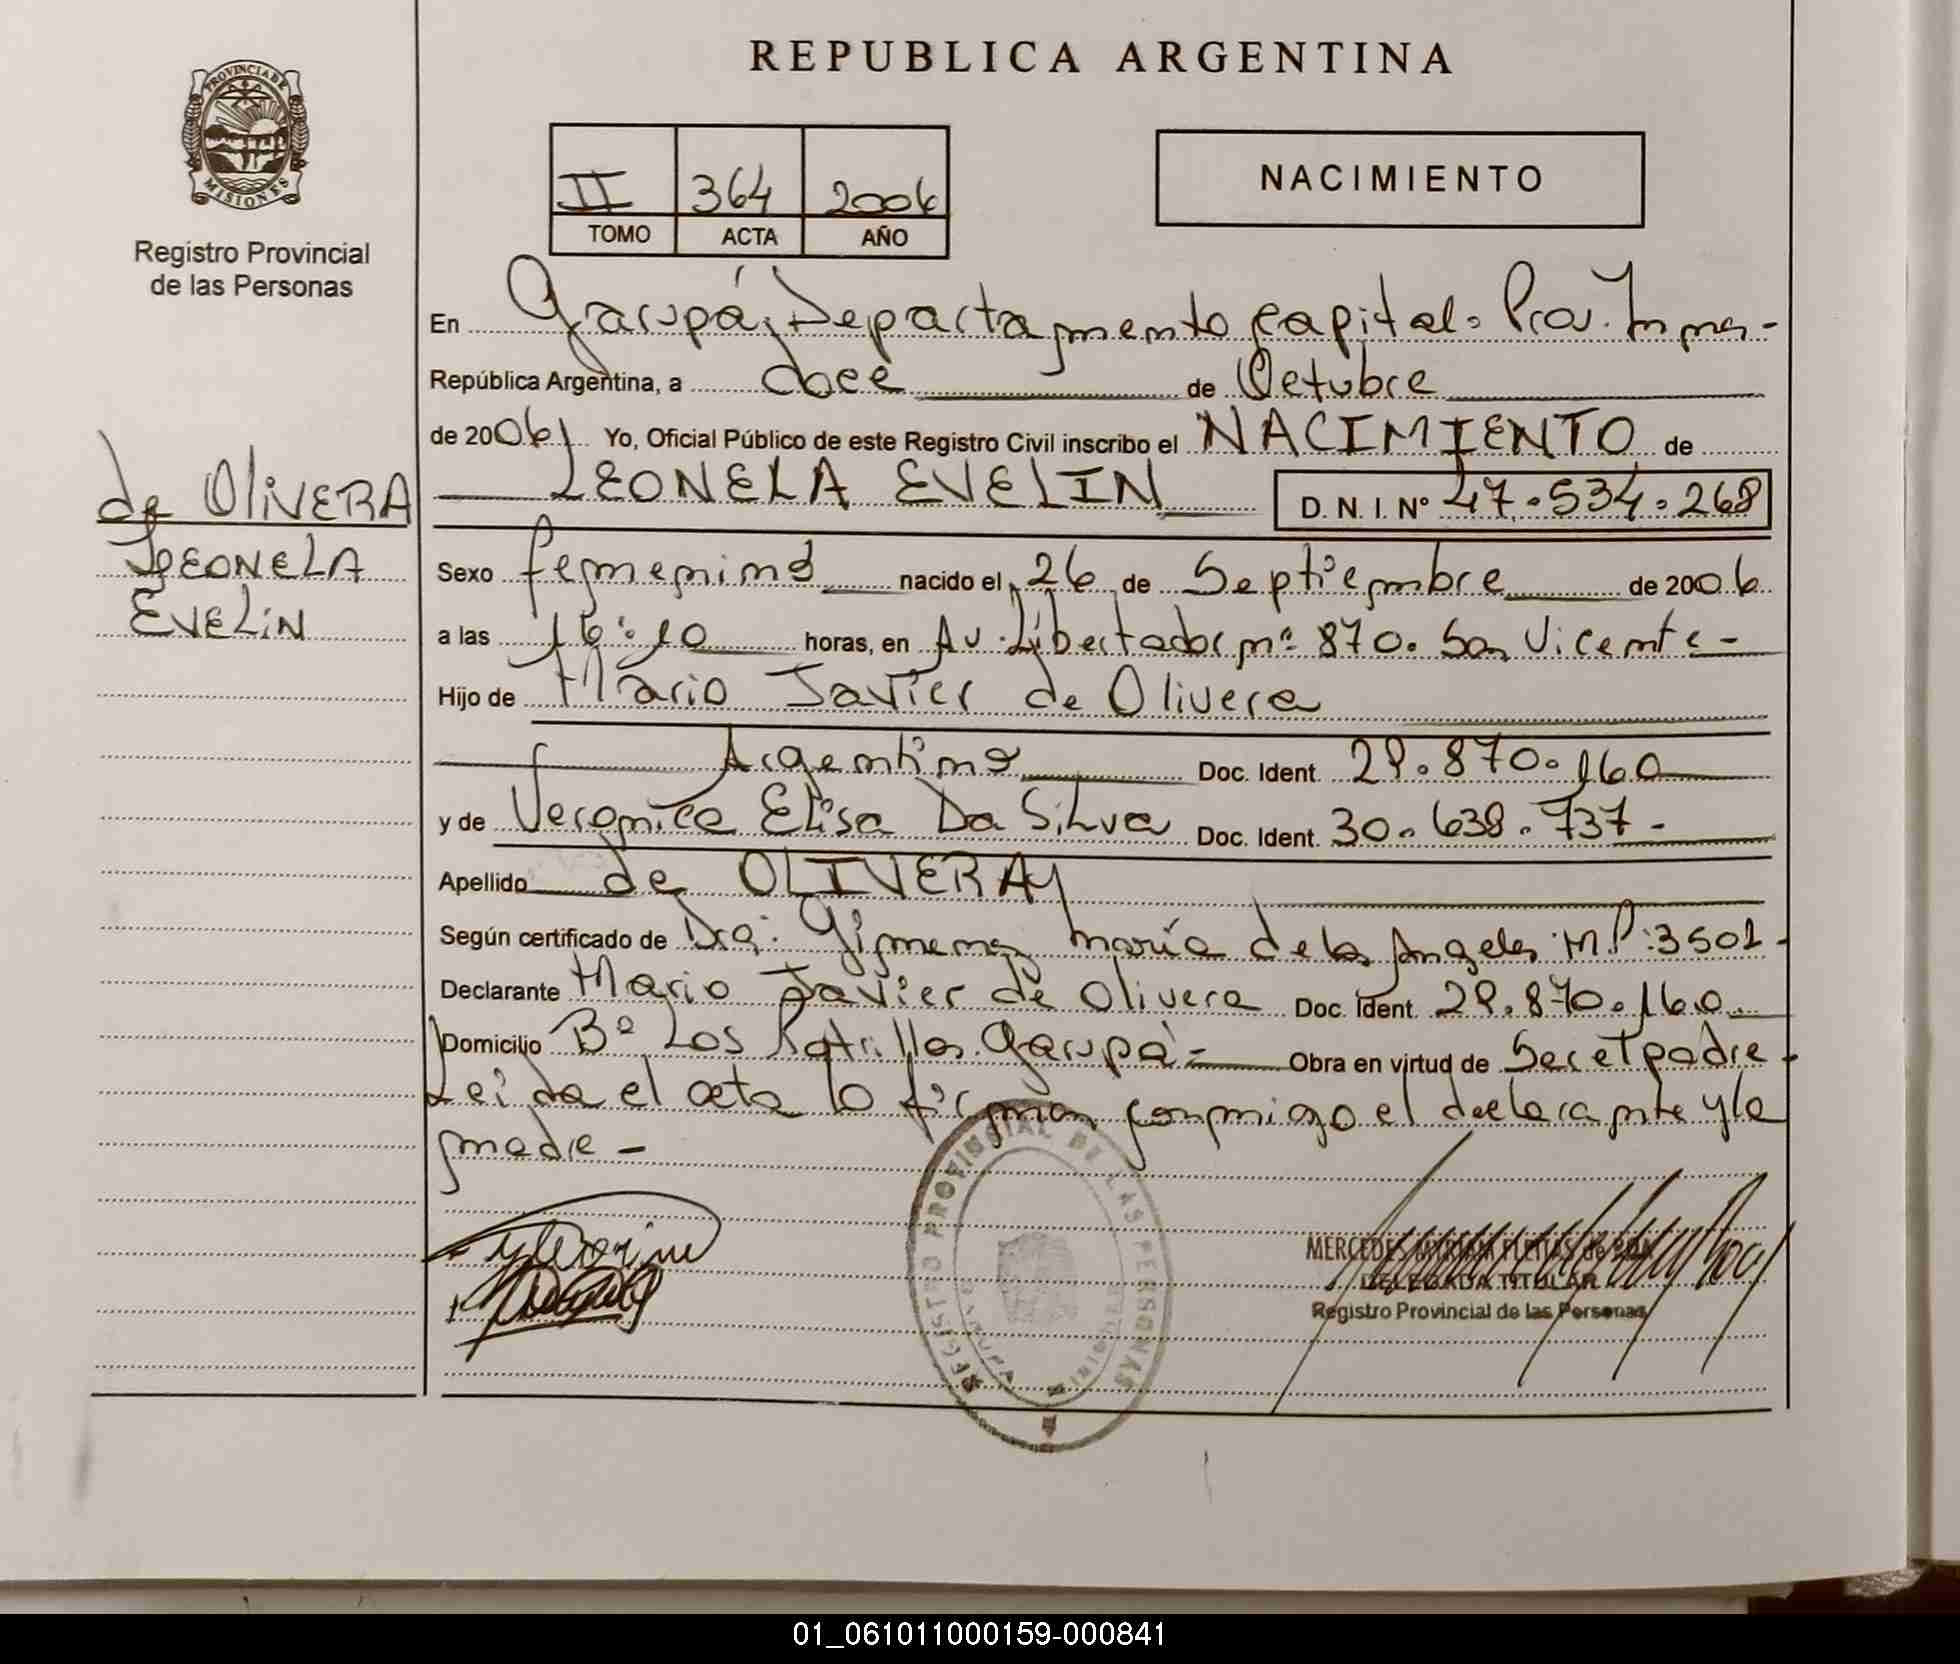 REPUBLICA ARGENTINA
PROVINCIA DE MISIONES
Registro Provincial
de las Personas
II 364 2006
TOMO ACTA AÑO
NACIMIENTO
En Garupá, Departamento Capital. Prov.
República Argentina, a doce de Octubre
de 2006 Yo, Oficial Público de este Registro Civil inscribo el NACIMIENTO de
LEONELA EVELIN D. N. I. Nº 47.534.268
de OLIVERA
LEONELA
EVELIN
Sexo femenino nacido el 26 de Septiembre de 2006
a las 16:10 horas, en Av. Libertador nº 870. San Vicente -
Hijo de Mario Javier de Olivera
Argentino Doc. Ident. 29.870.160
y de Veronica Elisa Da Silva Doc. Ident. 30.638.737.-
Apellido de OLIVERA
Según certificado de Dra: María de los Angeles M.P:3501-
Declarante Mario Javier de Olivera Doc. Ident. 29.870.160
Domicilio Bº Los Garupá - Obra en virtud de padre -
Leida el acta lo firman conmigo el declarante y la
madre -
REGISTRO PROVINCIAL DE LAS PERSONAS
GARUPA MISIONES
MERCEDES MYRIAM FLEITAS de
DELEGADA TITULAR
Registro Provincial de las Personas
01_061011000159-000841